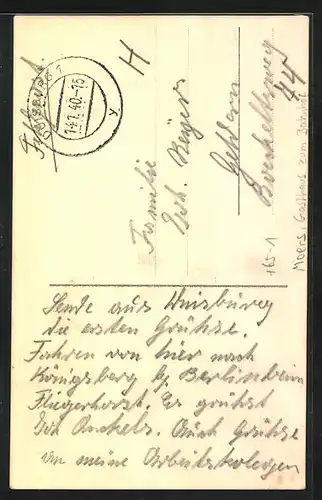 Feldpost.
14.7.40.-15
H
Familie
Joh. Beyers
Geldern
44
165-1
Moers, Gasthaus zum Bahnhof
Sende aus Duisburg
die ersten Grühse.
Fahren von hier nach
Königsberg bg. Berlin beim
Fliegerhorst. Es grühst
Joh Auch Grühse
an meine Arbeitskolegen